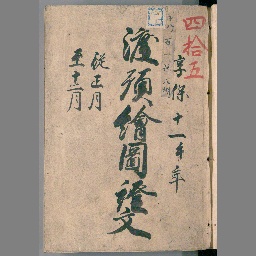 四拾五
享保十一年
渡頭繪圖證文
從正月
至十二月